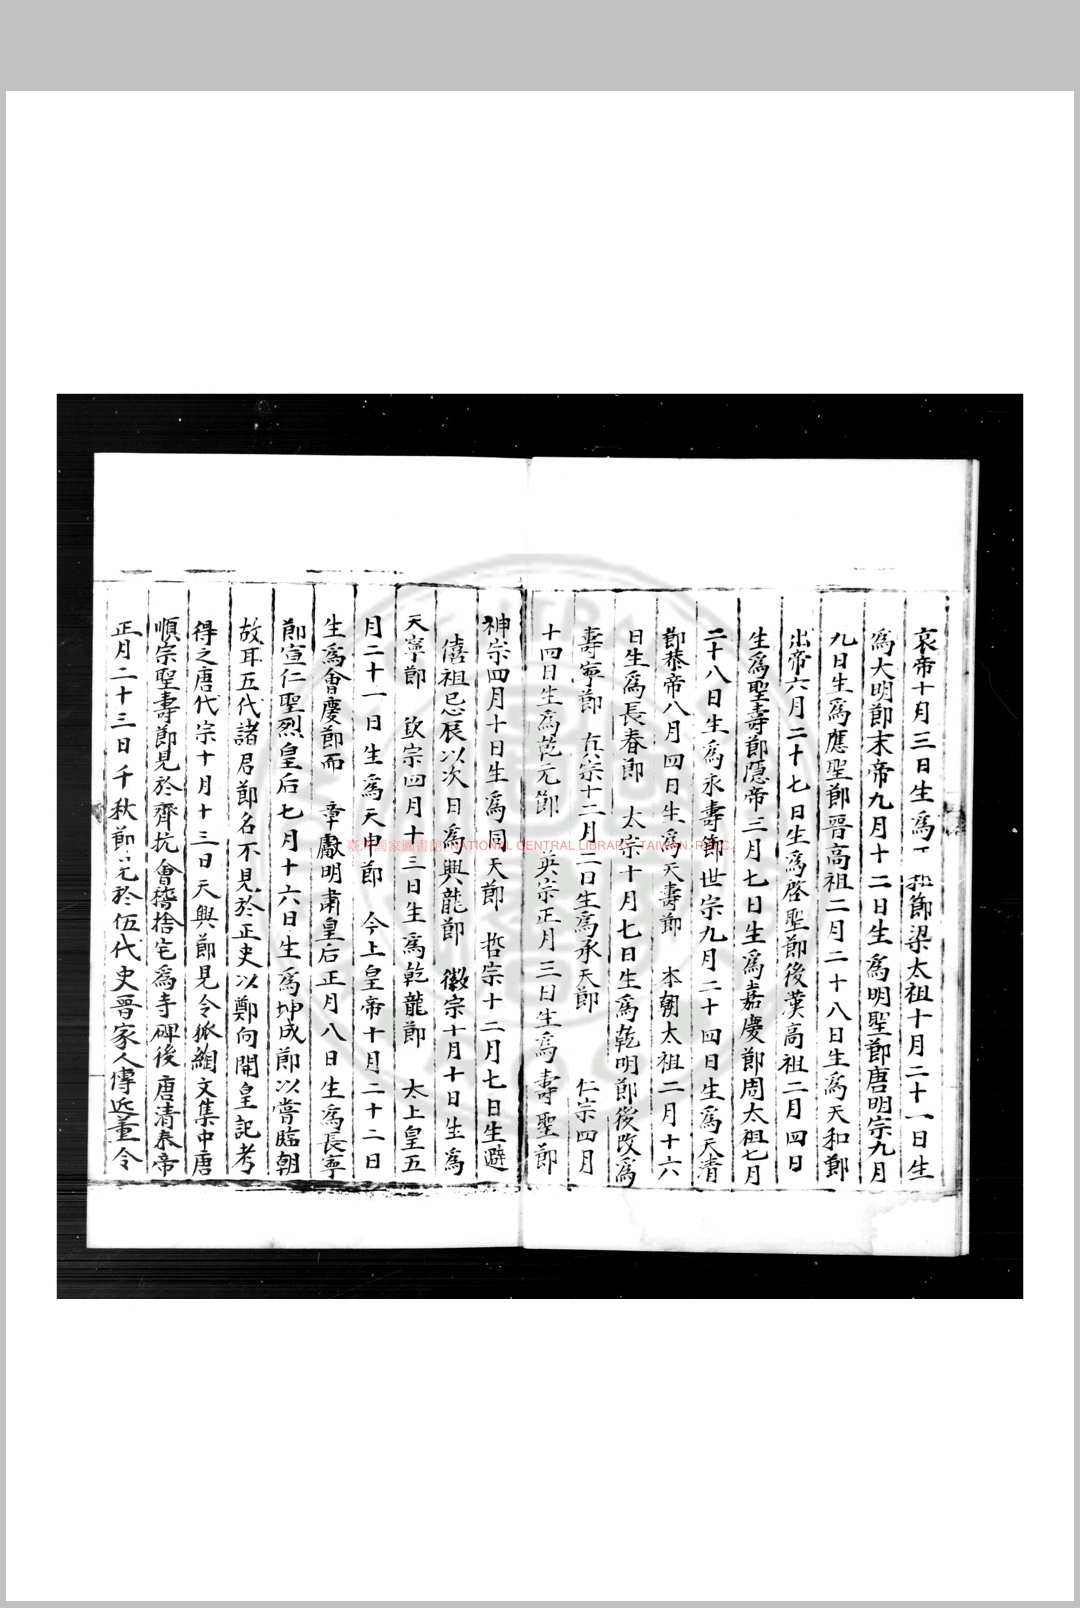 哀帝十月三日生爲 節梁太祖十月二十一日生
爲大明節末帝九月十二日生爲明聖節唐明宗九月
九日生爲應聖節晉高祖二月二十八日生爲天和節
出帝六月二十七日生爲啓聖節後漢高祖二月四日
生爲聖壽節隱帝三月七日生爲嘉慶節周太祖七月
二十八日生爲永壽節世宗九月二十四日生爲天清
節恭帝八月四日生爲天壽節 本朝太祖二月十六
日生爲長春節 太宗十月七日生爲乾明節後改爲
壽寧節 真宗十二月二日生爲承天節 仁宗四月
十四日生爲乾元節 英宗正月三日生爲壽聖節
神宗四月十日生爲同天節 哲宗十二月七日生避
僖祖忌辰以次日爲興龍節 徽宗十月十日生爲
天寧節 欽宗四月十三日生爲乾龍節 太上皇五
月二十一日生爲天申節 今上皇帝十月二十二日
生爲會慶節而 章獻明肅皇后正月八日生爲長寧
節宣仁聖烈皇后七月十六日生爲坤成節以嘗臨朝
故耳五代諸君節名不見於正史以鄭向開皇記考
得之唐代宗十月十三日天興節見令狐綯文集中唐
順宗聖壽節見於齊抗會稽捨宅爲寺碑後唐清泰帝
正月二十三日千秋節 於伍代史晉家人傳近董令
臺灣國家圖書館 NATIONAL CENTRAL LIBRARY, TAIWAN (R.O.C.)